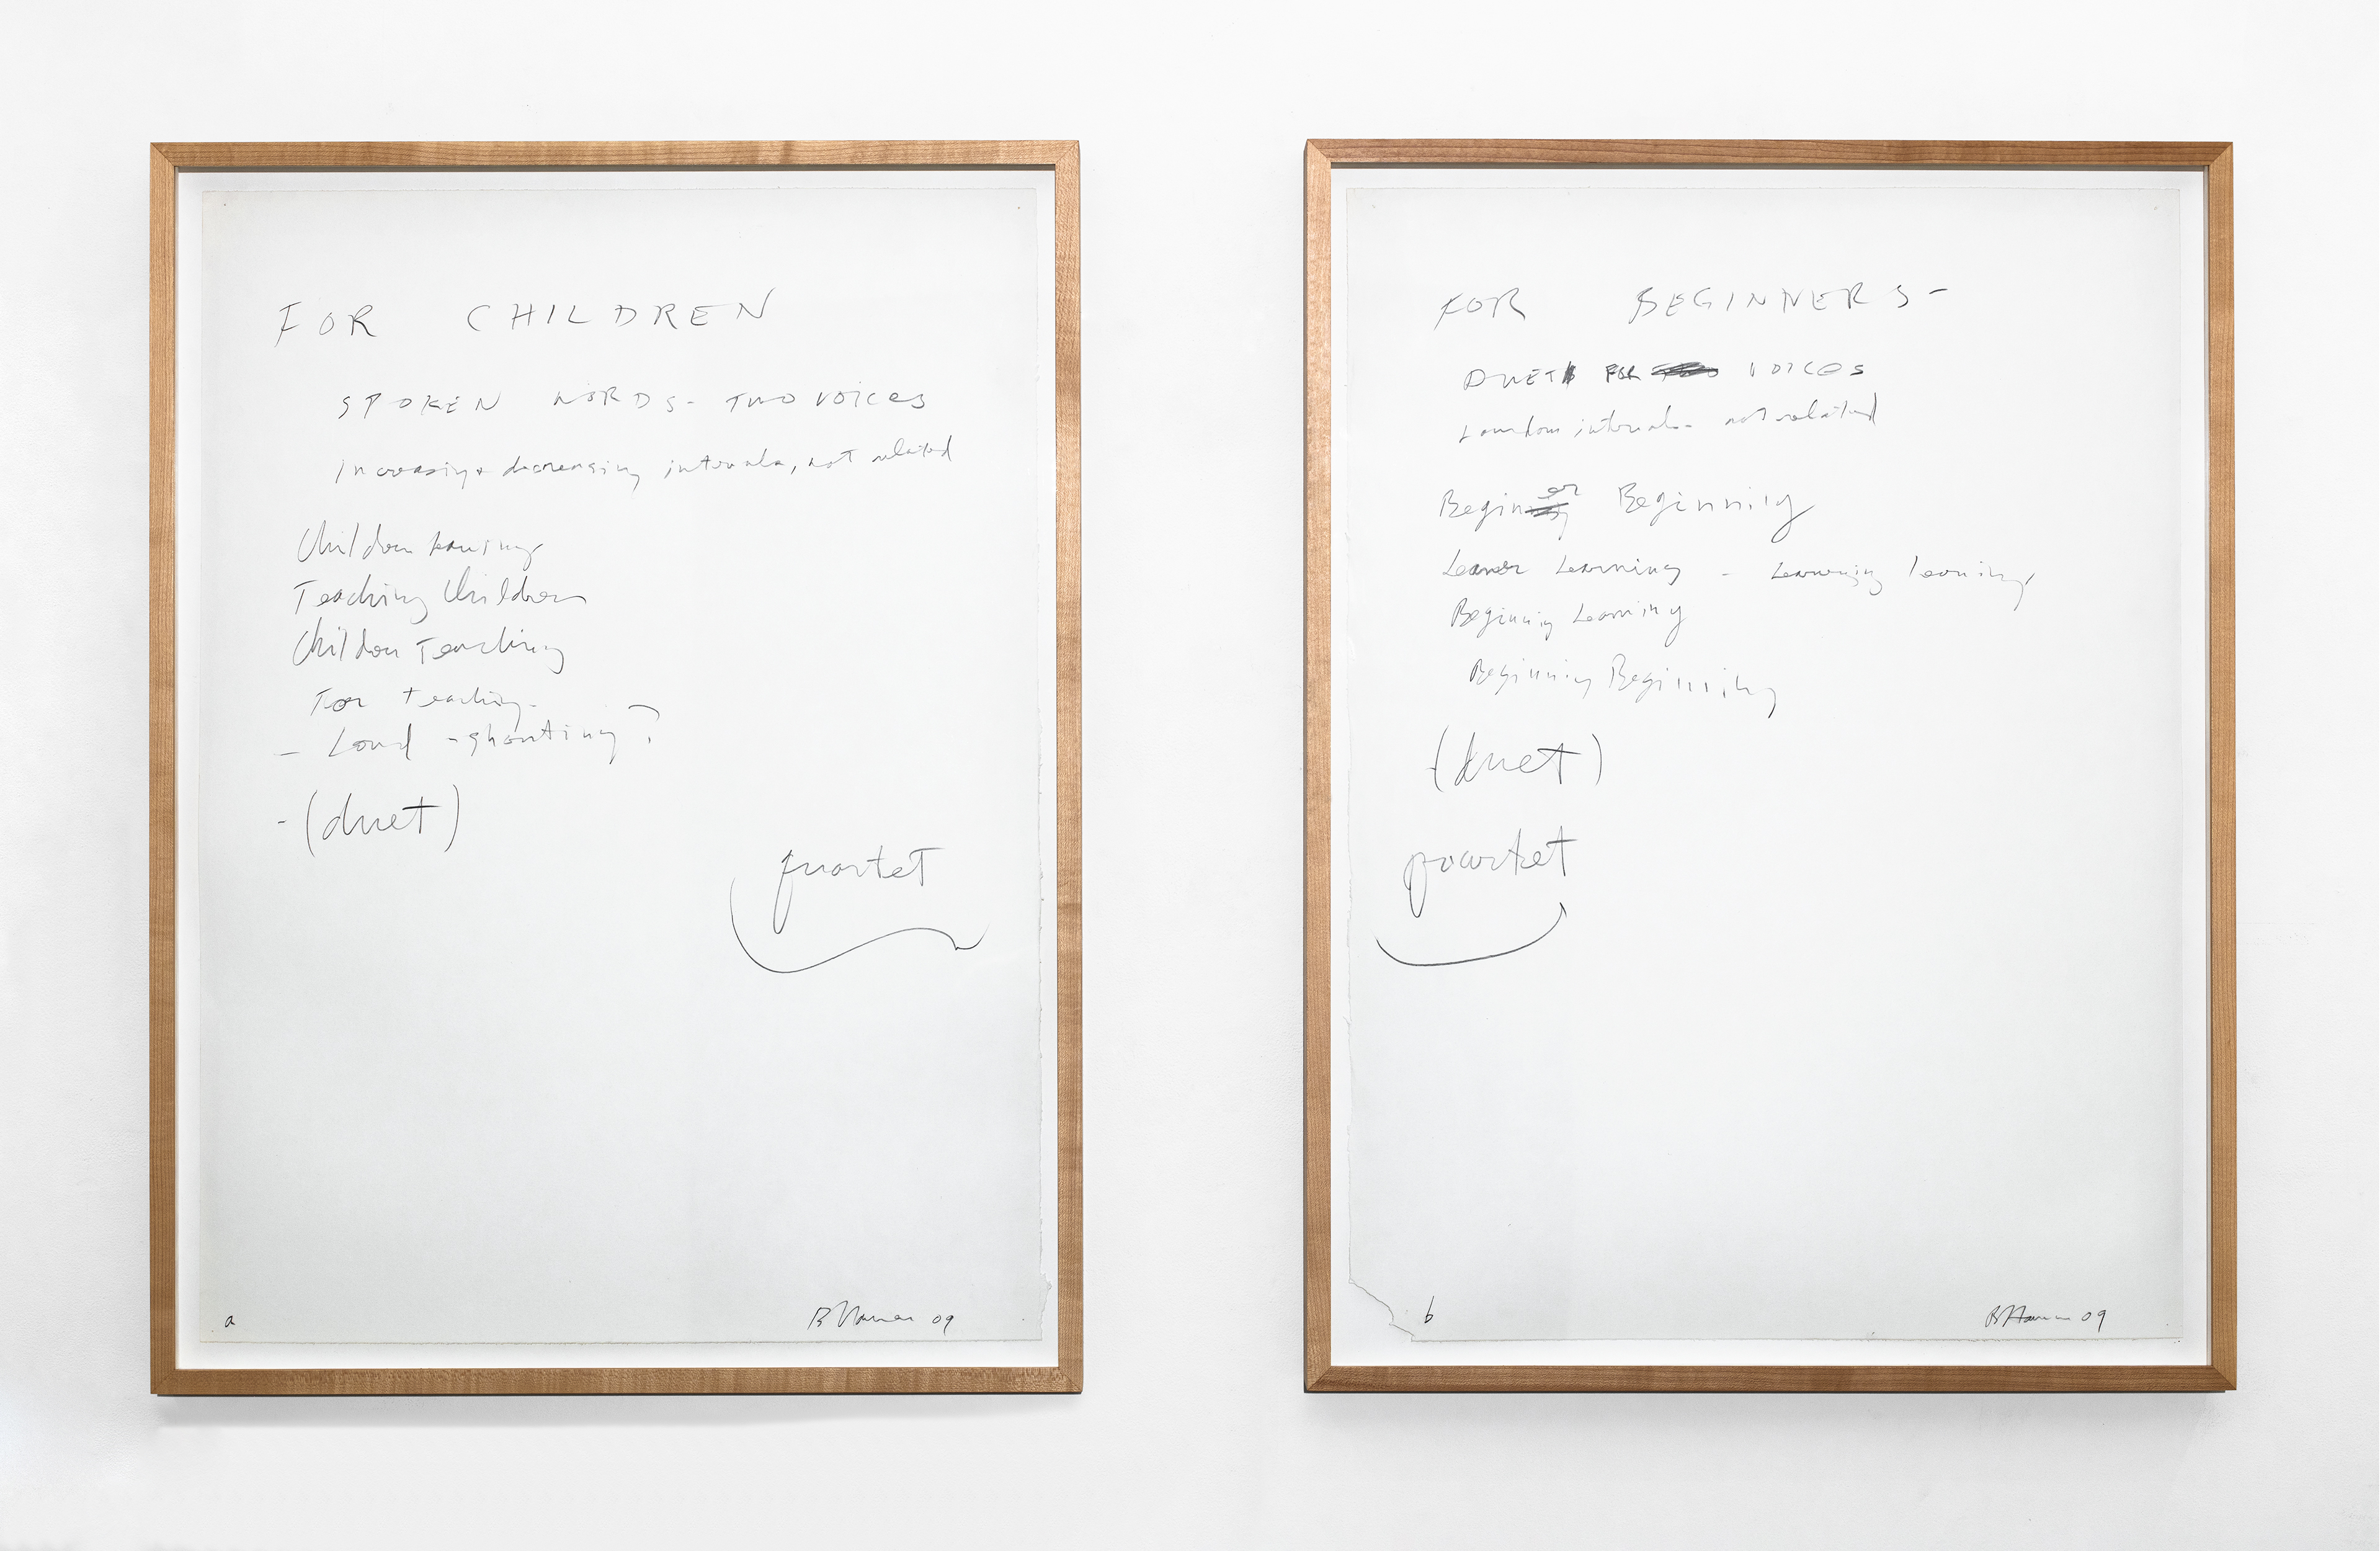 FOR CHILDREN
SPOKEN WORDS - TWO VOICES
Increasing + decreasing intervals, not related
Children
Teaching Children
Children Teaching
For teaching -
- Loud - shouting?
- (duet)
quartet
a
B Nauman 09
FOR BEGINNERS -
DUET FOR VOICES
random intervals - not related
Beginner Beginning
Learner Learning - Learning learning
Beginning Learning
Beginning Beginning
(duet)
quartet
b
B Nauman 09